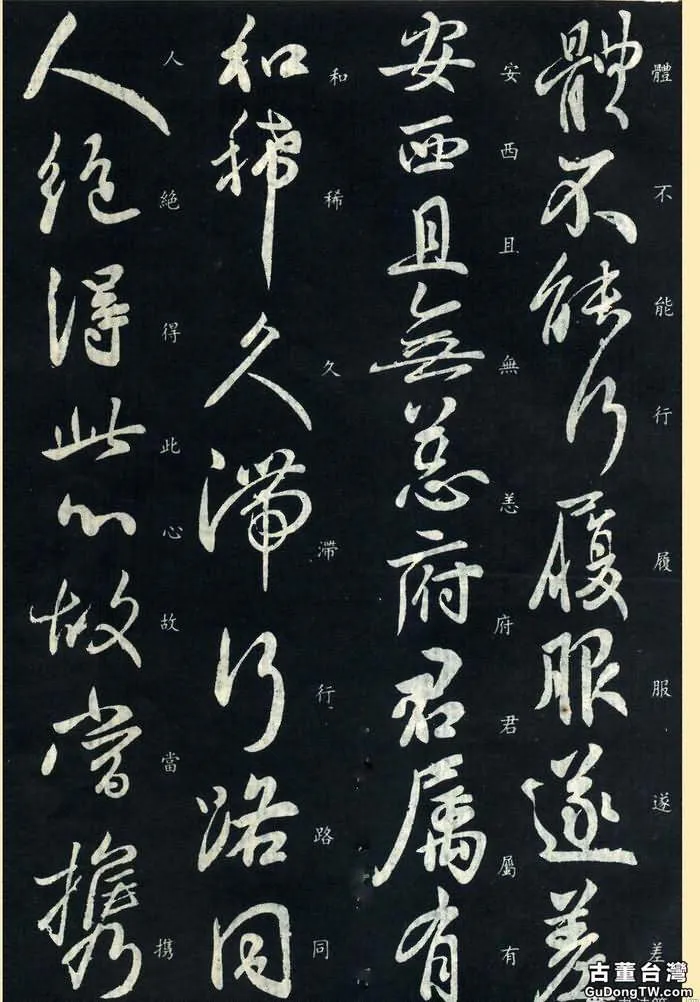 體不能行履服遂差
體不能行履服遂差
安西且無恙府君屬有
安西且無恙府君屬有
和稀久滯行路同
和稀久滯行路同
人絕得此心故當攜
人絕得此心故當携
古董台灣
GuDongTW.com